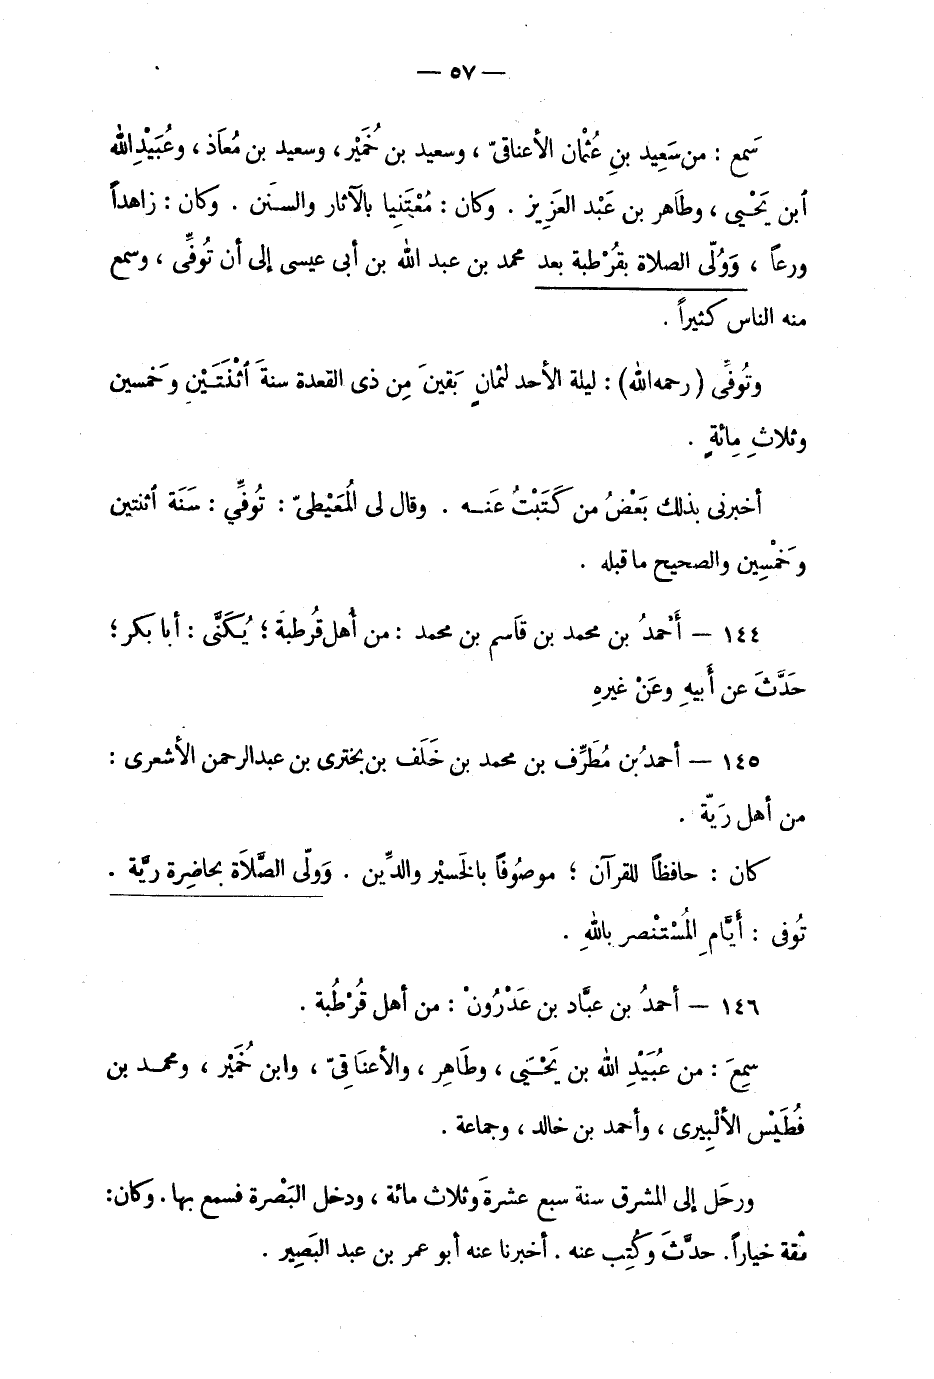 — ٥٧ —
سَمع : من سَعِيد بنِ عُثْمان الأعناقىّ ، وسعيد بن خُمَيْر، وسعيد بن مُعَاذ ، وعُبَيْدِ الله
أبن يَحْـيى ، وطَاهر بن عَبْد العَزِيز . وكان : مُعْتَنِيا بالآثار والسنَن . وكان : زاهداً
ورعاً ، وَوُلّى الصلاة بقُرْطبة بعد محمد بن عبد الله بن أبى عيسى إلى أن تُوفِّى ، وسمع
منه الناس كثيراً .
وتُوفِّى ( رحمه الله ) : ليلة الأحد لثمانٍ بَقينَ مِن ذى القعدة سنةَ أثْنَتَـيْن وخَمسين
وثلاثِ مِائةٍ .
أخبرنى بذلك بَعْضُ من كَتَبْتُ عَنـه . وقال لى المُعَيْطىّ : تُوفِّي : سَنَة أثنتين
وخَمْسِين والصحيح ما قبله .
١٤٤ — أَحْمدُ بن محمد بن قَاسم بن محمد : من أهل قُرطبةَ ؛ يُـكَنَّى : أبا بكر ؛
حَدَّثَ عن أَبيهِ وعَنْ غيرهِ
١٤٥ — أحمدُ بن مُطَرِّف بن محمد بن خَلَف بن بخترى بن عبدالرحمن الأشعرى :
من أهل رَيّة .
كان : حافظاً للقرآن ؛ موصُوفاً بالخَـيْر والدِّين . وَولّى الصَّلاَة بحاضِرة ريَّة .
تُوفى : أَيَّامِ المُسْتنْصر باللهِ .
١٤٦ — أحمدُ بن عبَّاد بن عَدْرُونْ : من أهل قُرْطُبة .
سمِعَ : من عُبَيْدِ الله بن يَحْـيَى ، وطَاهِر ، والأعنَاقِىّ ، وابن خُمَيْر ، ومحمـد بن
فُطَيْس الألْبِيرى ، وأحمد بن خالد ، وجماعة .
ورحَل إلى المشرق سنة سبع عشرةَ وثلاث مائة ، ودخل البَصْرة فسمع بها . وكان:
ثقة خياراً. حدَّثَ وكُتِب عنه . أخبرنا عنه أبو عمر بن عبد البَصِير .